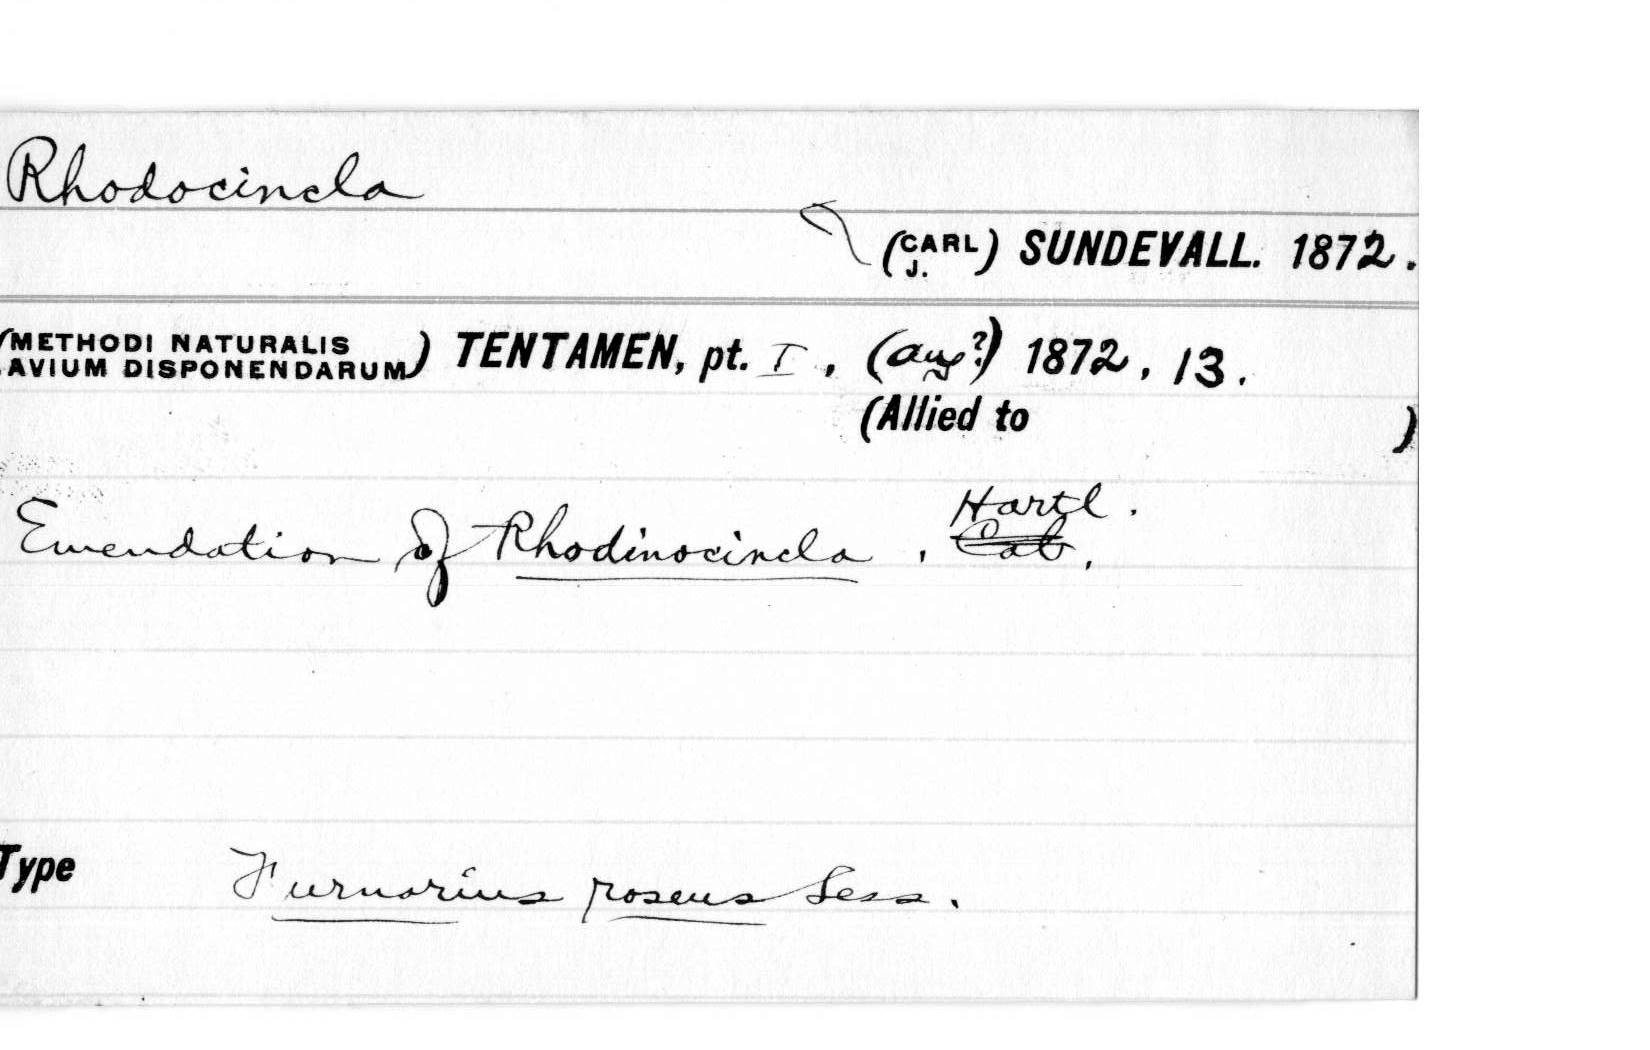 Rhodocincla
(CARL J.) SUNDEVALL. 1872.
(METHODI NATURALIS AVIUM DISPONENDARUM) TENTAMEN, pt. I, (Aug?) 1872, 13.
(Allied to )
Hartl.
Emendation of Rhodinocincla, Cab.
Type Furnarius roseus Less.